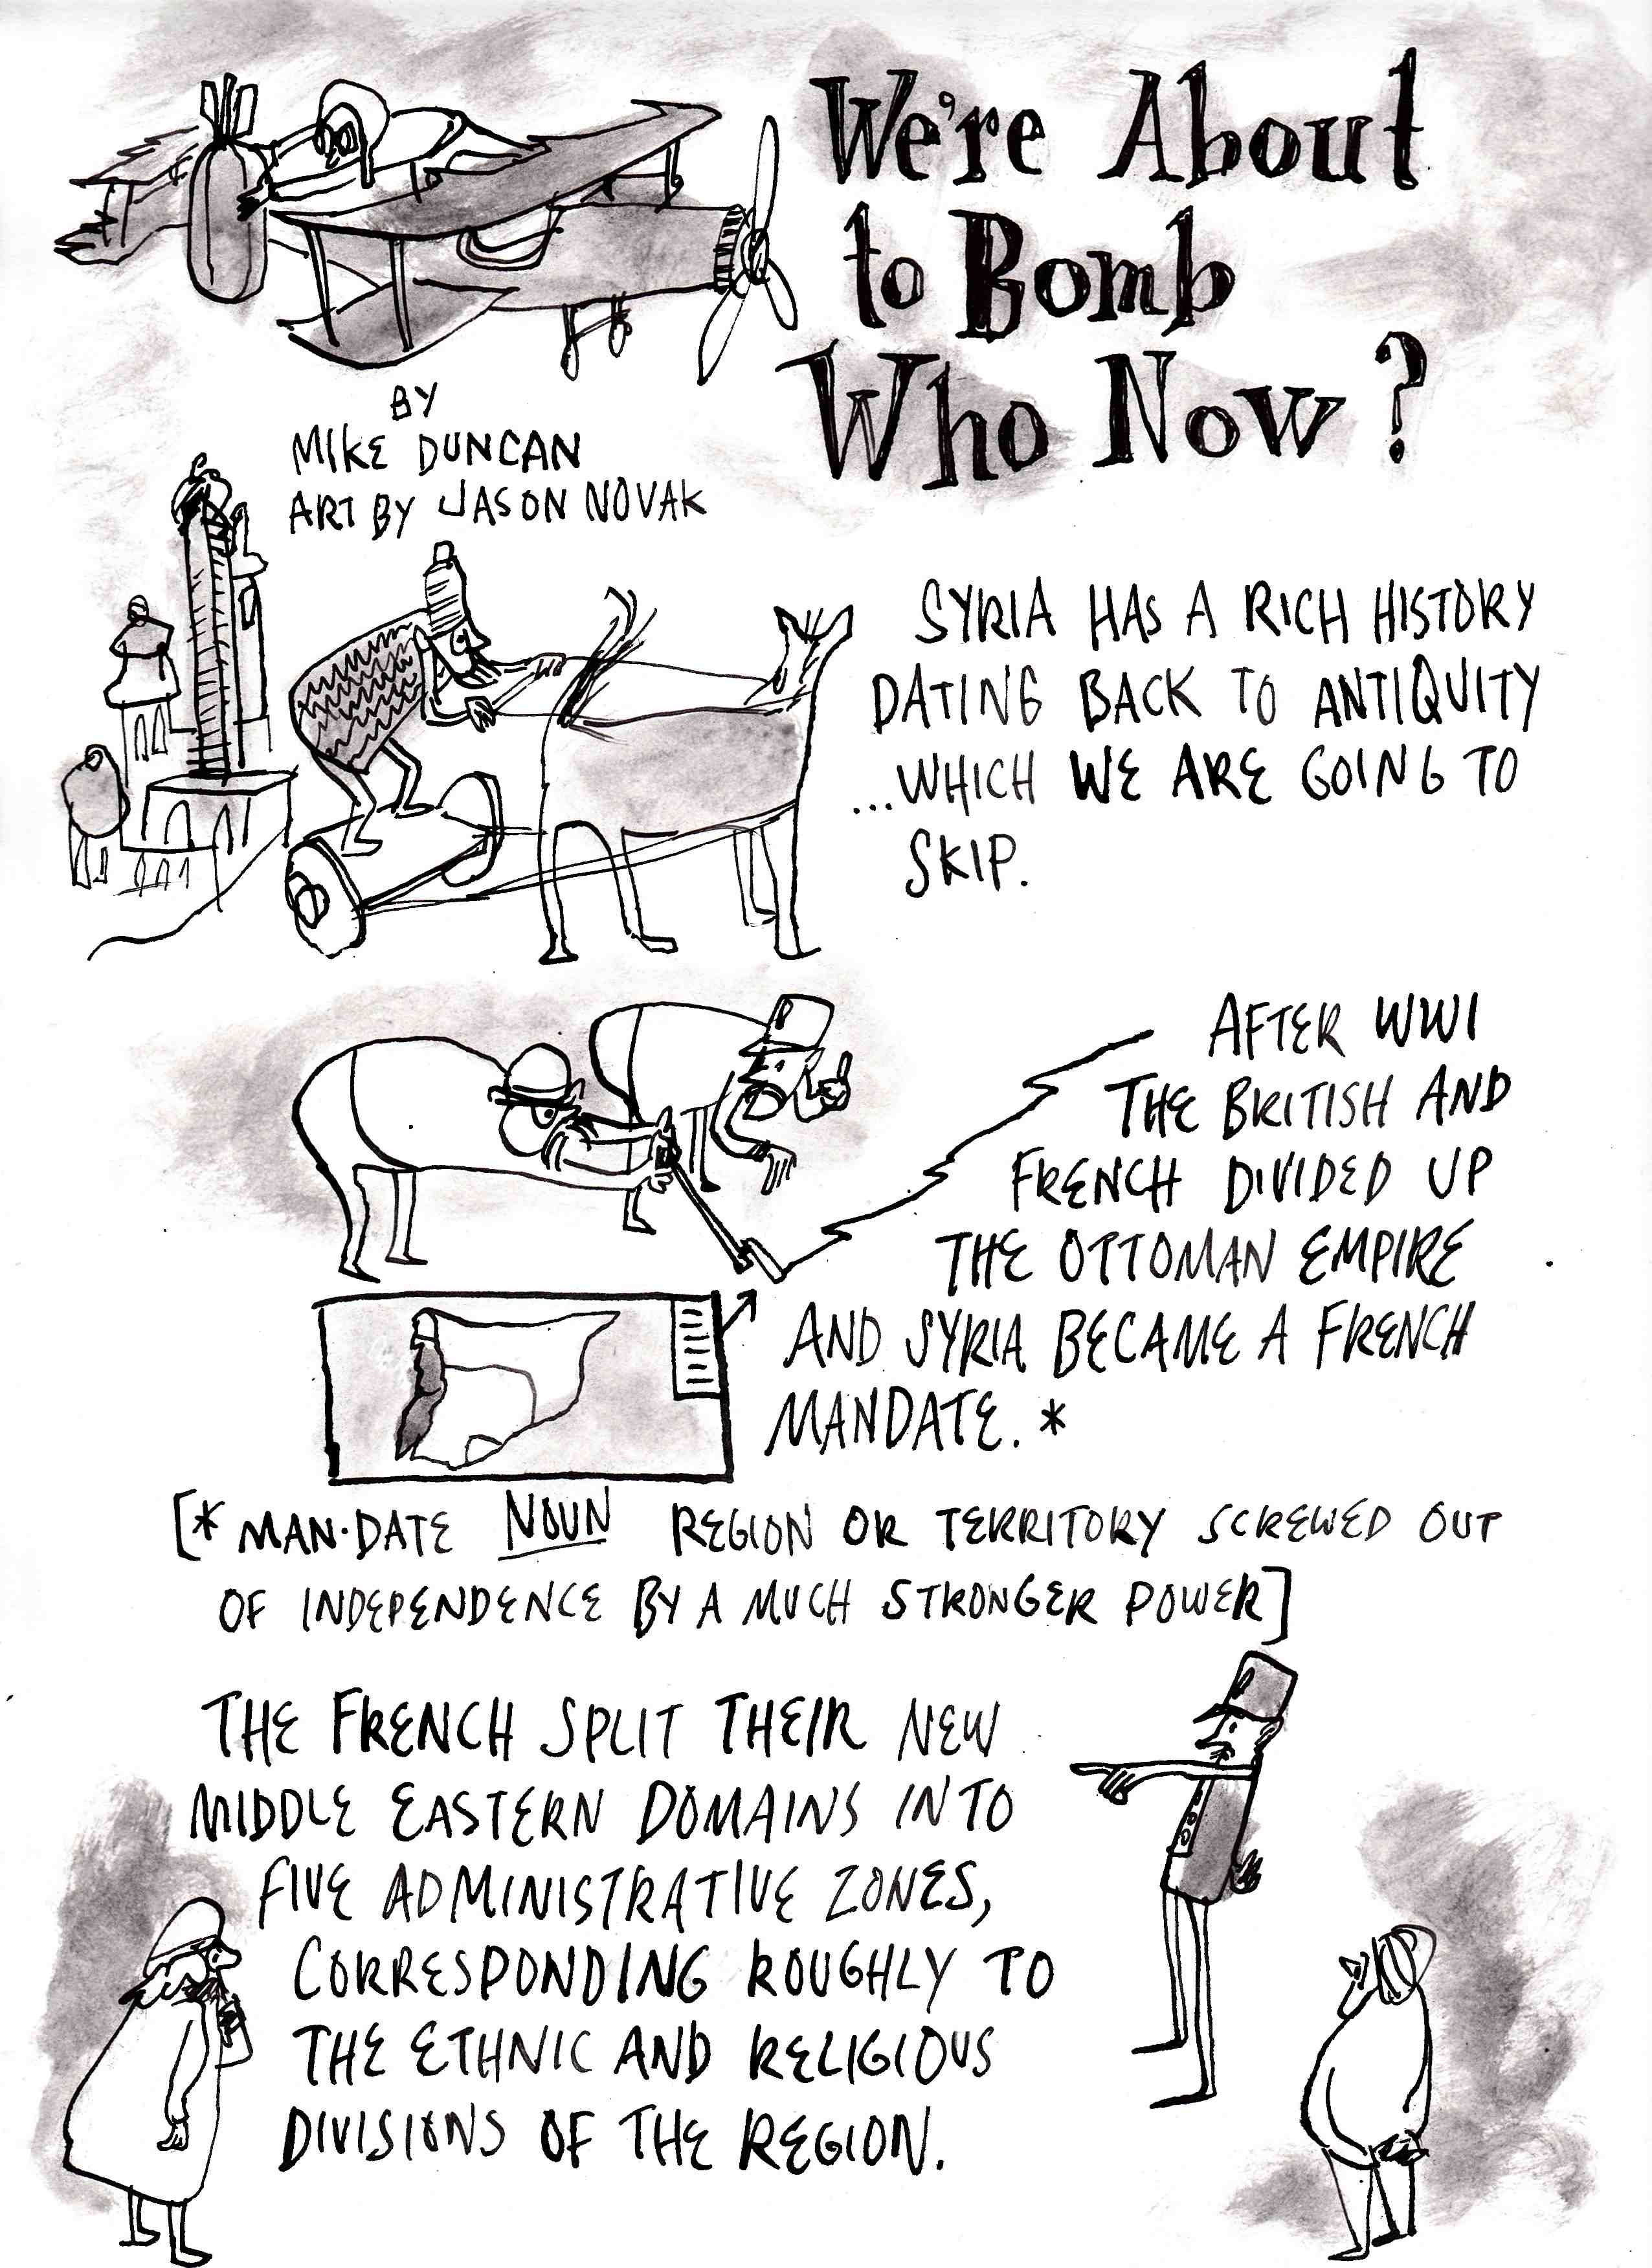 We're About
to Bomb
Who Now?
BY
MIKE DUNCAN
ART BY JASON NOVAK
SYRIA HAS A RICH HISTORY
DATING BACK TO ANTIQUITY
...WHICH WE ARE GOING TO
SKIP.
AFTER WWI
THE BRITISH AND
FRENCH DIVIDED UP
THE OTTOMAN EMPIRE
AND SYRIA BECAME A FRENCH
MANDATE.*
[*MAN·DATE NOUN REGION OR TERRITORY SCREWED OUT
OF INDEPENDENCE BY A MUCH STRONGER POWER]
THE FRENCH SPLIT THEIR NEW
MIDDLE EASTERN DOMAINS INTO
FIVE ADMINISTRATIVE ZONES,
CORRESPONDING ROUGHLY TO
THE ETHNIC AND RELIGIOUS
DIVISIONS OF THE REGION.